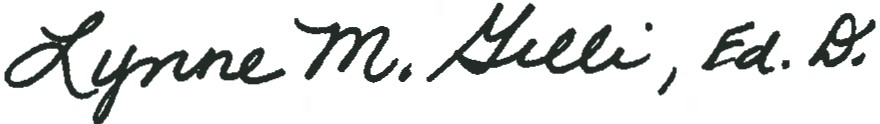 Lynne M. Gilli, Ed. D.